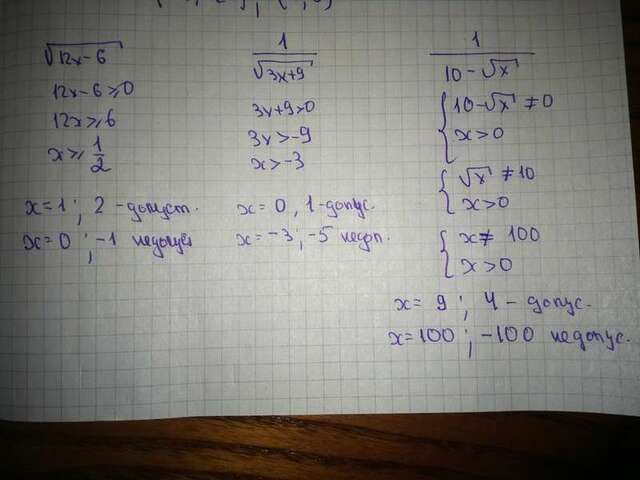 √12x-6
12x-6≥0
12x≥6
x≥ 1/2
x=1; 2 - допуст.
x=0; -1 недопус
1/√3x+9
3x+9>0
3x>-9
x>-3
x=0; 1 - допус.
x=-3; -5 недоп.
1/10-√x
{ 10-√x ≠ 0
x>0
{ √x ≠ 10
x>0
{ x ≠ 100
x>0
x=9; 4 - допус.
x=100; -100 недопус.